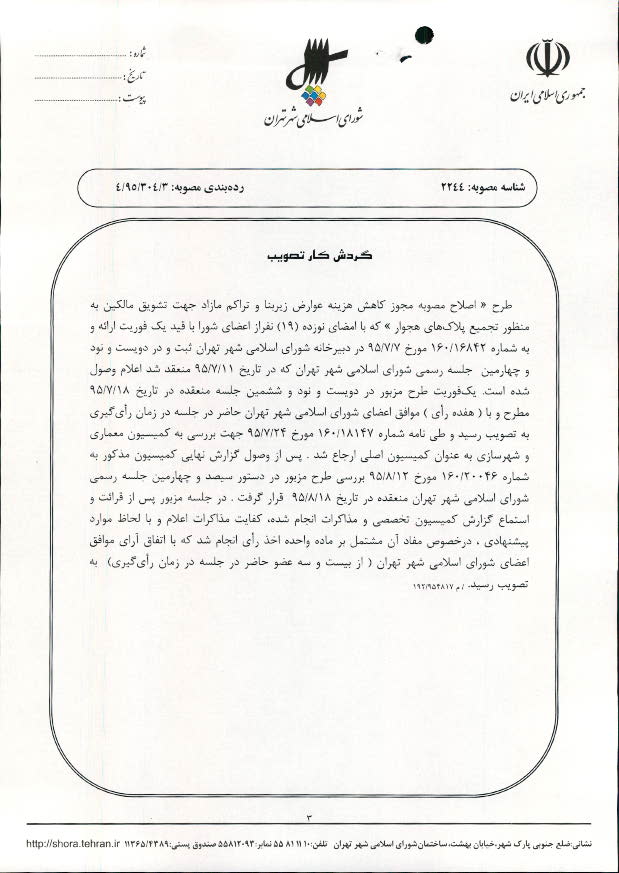 جمهوری اسلامی ایران
شورای اسلامی شهر تهران
شماره :
تاریخ :
پیوست :
شناسه مصوبه: ٢٢٤٤
رده‌بندی مصوبه: ٤/٩٥/٣٠٤/٣
گردش کار تصویب
طرح « اصلاح مصوبه مجوز کاهش هزینه عوارض زیربنا و تراکم مازاد جهت تشویق مالکین به
منظور تجمیع پلاک‌های هجوار » که با امضای نوزده (١٩) نفراز اعضای شورا با قید یک فوریت ارائه و
به شماره ١٦٠/١٦٨٤٢ مورخ ٩٥/٧/٧ در دبیرخانه شورای اسلامی شهر تهران ثبت و در دویست و نود
و چهارمین جلسه رسمی شورای اسلامی شهر تهران که در تاریخ ٩٥/٧/١١ منعقد شد اعلام وصول
شده است. یک‌فوریت طرح مزبور در دویست و نود و ششمین جلسه منعقده در تاریخ ٩٥/٧/١٨
مطرح و با ( هفده رأی ) موافق اعضای شورای اسلامی شهر تهران حاضر در جلسه در زمان رأی‌گیری
به تصویب رسید و طی نامه شماره ١٦٠/١٨١٤٧ مورخ ٩٥/٧/٢٤ جهت بررسی به کمیسیون معماری
و شهرسازی به عنوان کمیسیون اصلی ارجاع شد . پس از وصول گزارش نهایی کمیسیون مذکور به
شماره ١٦٠/٢٠٠٤٦ مورخ ٩٥/٨/١٢ بررسی طرح مزبور در دستور سیصد و چهارمین جلسه رسمی
شورای اسلامی شهر تهران منعقده در تاریخ ٩٥/٨/١٨ قرار گرفت . در جلسه مزبور پس از قرائت و
استماع گزارش کمیسیون تخصصی و مذاکرات انجام شده، کفایت مذاکرات اعلام و با لحاظ موارد
پیشنهادی ، درخصوص مفاد آن مشتمل بر ماده واحده اخذ رأی انجام شد که با اتفاق آرای موافق
اعضای شورای اسلامی شهر تهران ( از بیست و سه عضو حاضر در جلسه در زمان رأی‌گیری) به
تصویب رسید. / م ١٩٢/٩٥٤٨١٧
٣
نشانی:ضلع جنوبی پارک شهر،خیابان بهشت، ساختمان‌شورای اسلامی شهر تهران تلفن:١٠ ١١ ٨١ ٥٥ نمابر:٥٥٨١٢٠٩٣ صندوق پستی:١١٣٦٥/٤٣٨٩ http://shora.tehran.ir